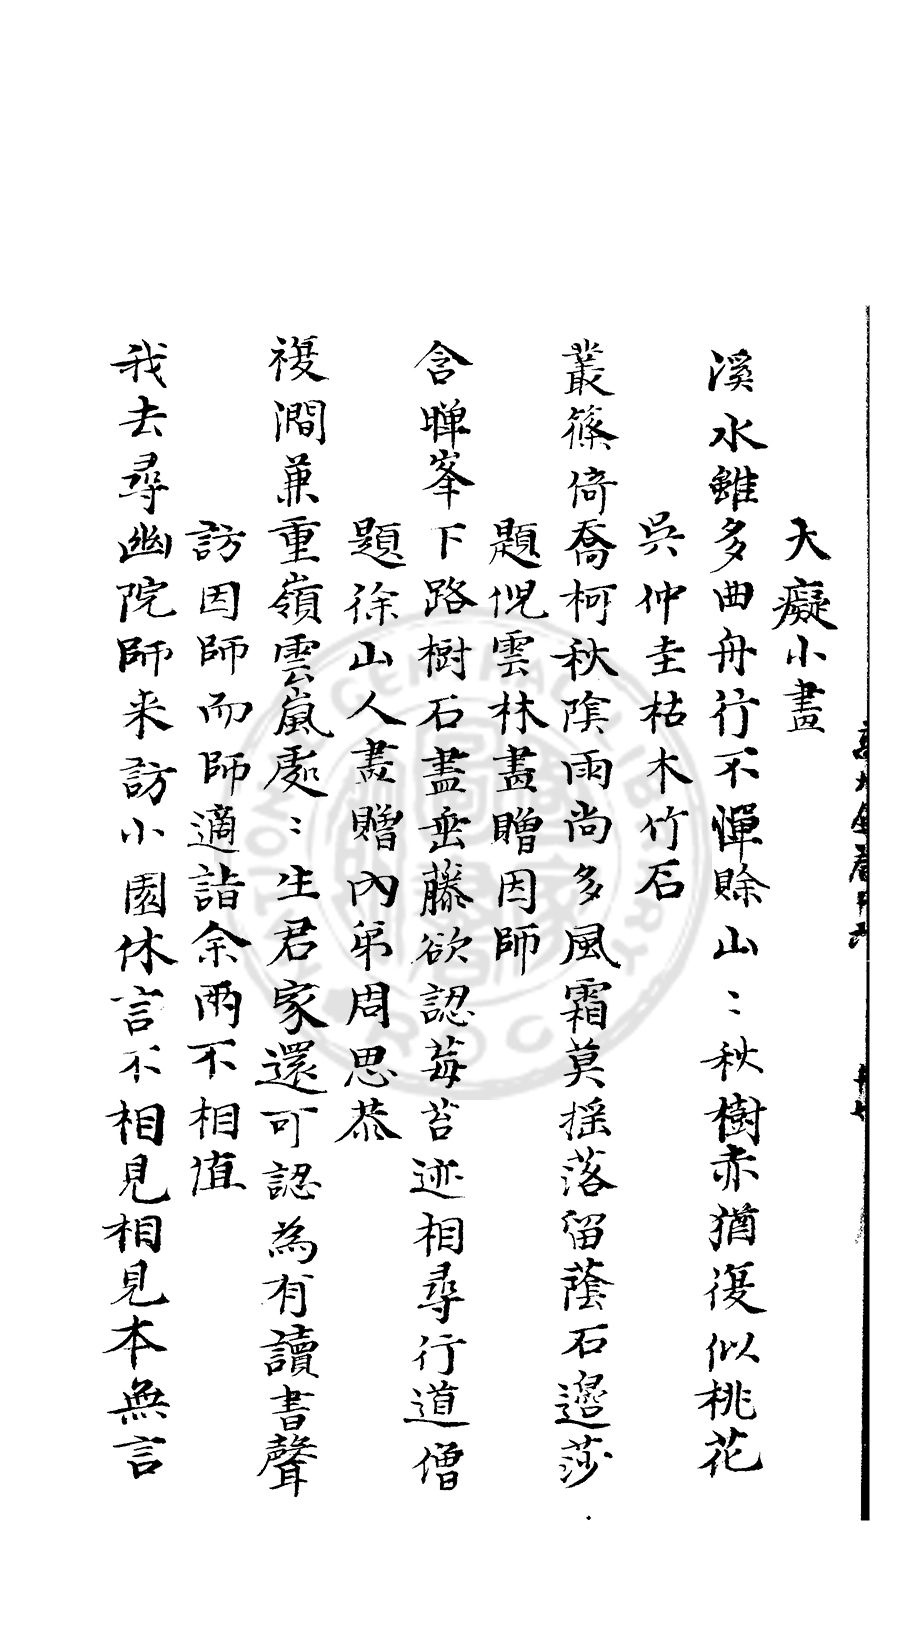 大癡小畫
溪水雖多曲舟行不憚賒山〻秋樹赤猶復似桃花
吳仲圭枯木竹石
叢篠倚喬柯秋陰雨尚多風霜莫搖落留蔭石邊莎
題倪雲林畫贈因師
含暉峯下路樹石盡垂藤欲認莓苔迹相尋行道僧
題徐山人畫贈內弟周思恭
複澗兼重嶺雲嵐處〻生君家還可認為有讀書聲
訪因師而師適詣余兩不相值
我去尋幽院師来訪小園休言不相見相見本無言